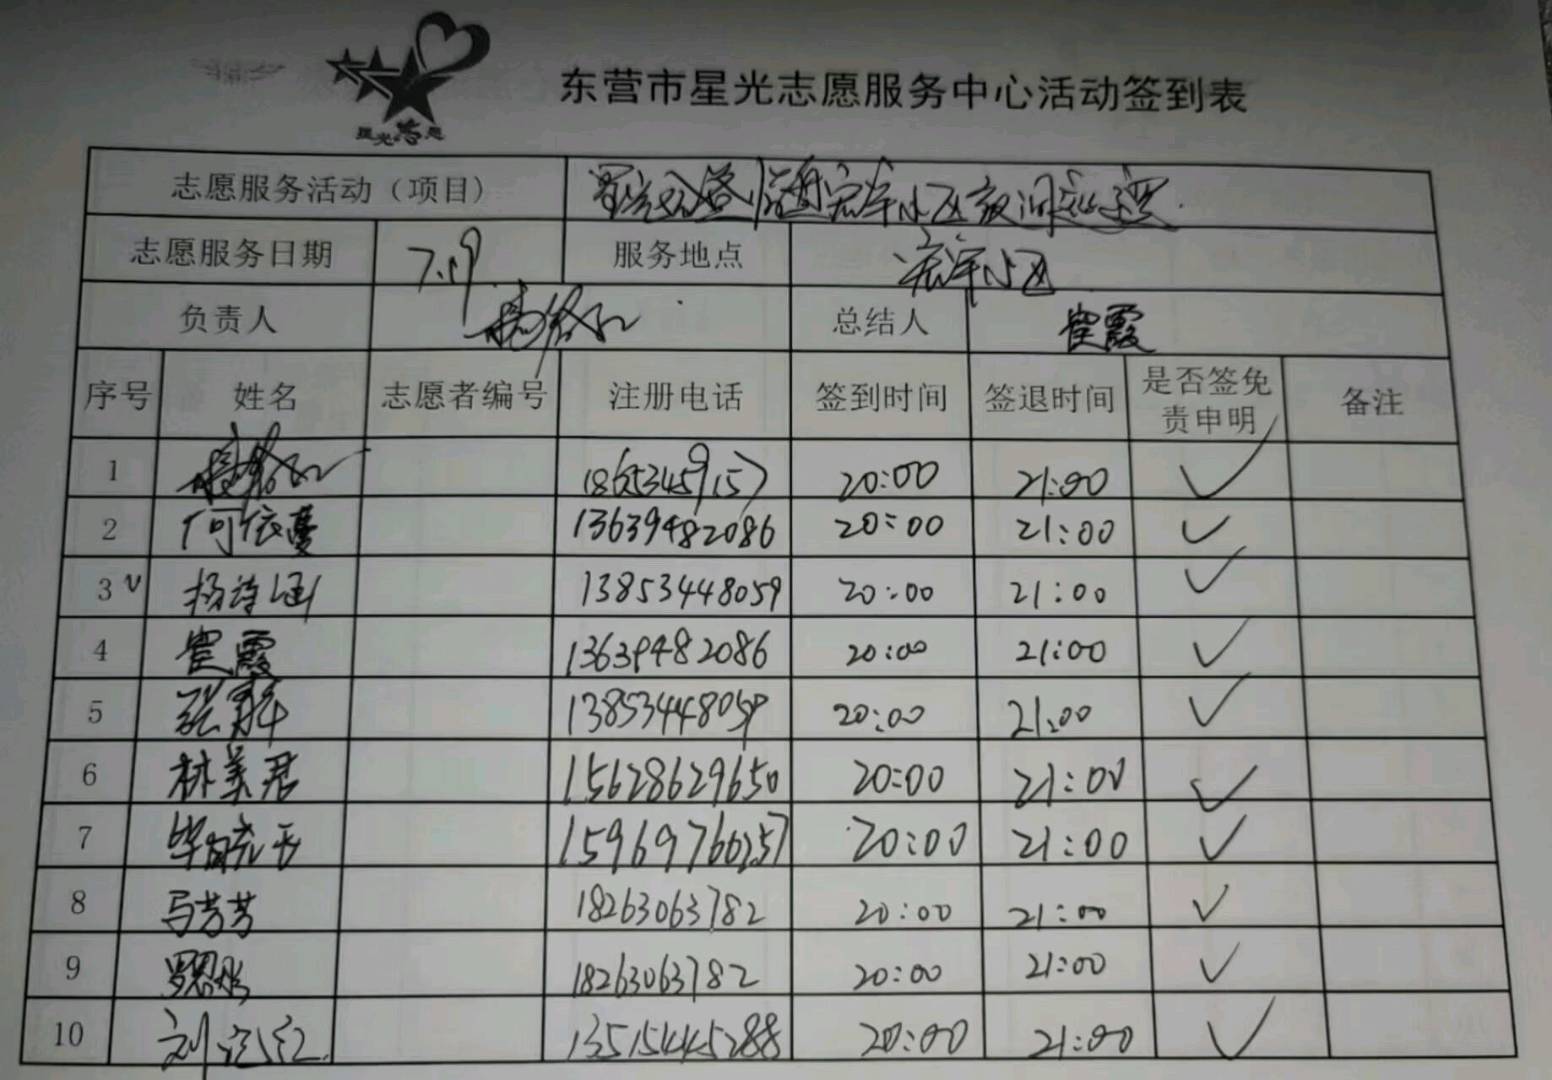 星光志愿
东营市星光志愿服务中心活动签到表
志愿服务活动（项目） 小区夜间巡逻
志愿服务日期 7.19 服务地点 小区
负责人 总结人 崔霞
序号 姓名 志愿者编号 注册电话 签到时间 签退时间 是否签免责申明 备注
1 18653459157 20:00 21:00 ✓
2 何依蔓 13639482086 20:00 21:00 ✓
3 ✓ 杨诗涵 13853448059 20:00 21:00 ✓
4 崔霞 13639482086 20:00 21:00 ✓
5 张 13853448059 20:00 21:00 ✓
6 林美君 15628629650 20:00 21:00 ✓
7 20:00 21:00 ✓
8 马芳芳 18263063782 20:00 21:00 ✓
9 18263063782 20:00 21:00 ✓
10 刘 13515445288 20:00 21:00 ✓